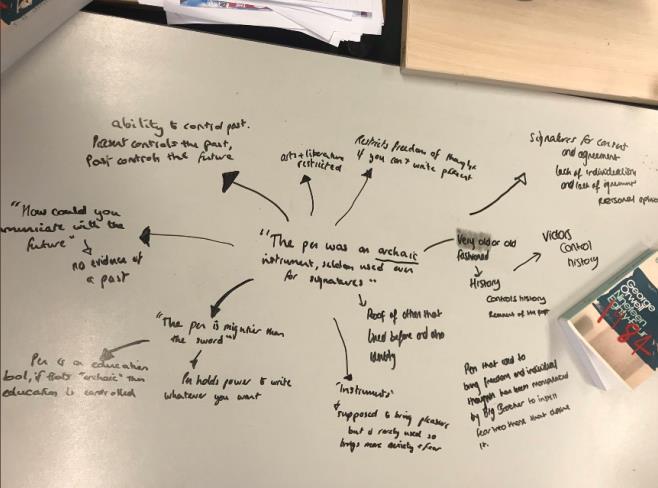 ability to control past.
Present controls the past,
Past controls the future
arts + literature
restricted
Restricts freedom of thought
if you can't write present
Signatures for consent
and agreement
lack of individuality
and lack of
personal
"How could you
communicate with the
future"
no evidence of
a past
"The pen was an archaic
instrument, seldom used even
for signatures"
Very old or old
fashioned
History
controls history
Remnant of the past
Victors
control
history
"The pen is mightier than
the sword"
Pen holds power to write
whatever you want
Pen is an education
tool, if that's "archaic" then
education is controlled
Proof of others that
lived before old
identity
"Instruments"
supposed to bring pleasure
but is rarely used so
brings more anxiety + fear
Pen that used to
bring freedom and individual
thought has been manipulated
by Big Brother to instil
fear into those that
it.
George
Orwell
Nineteen
Eighty-Four
1984